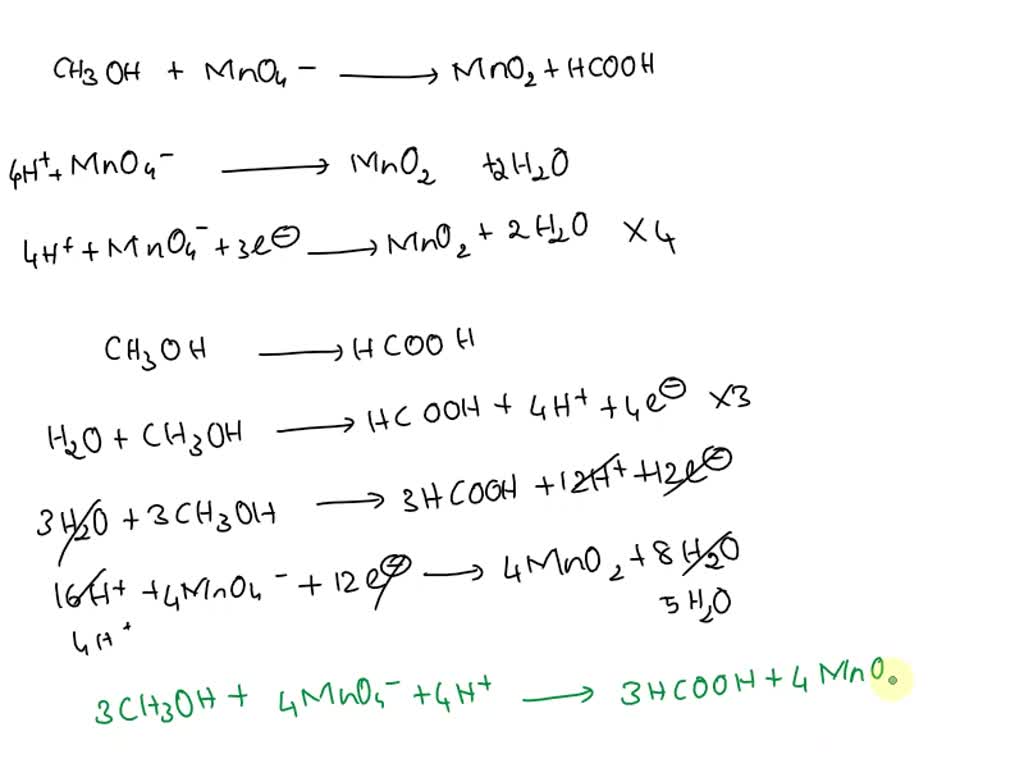 CH₃OH + MnO₄⁻ ⟶ MnO₂ + HCOOH
4H⁺ + MnO₄⁻ ⟶ MnO₂ +2H₂O
4H⁺ + MnO₄⁻ + 3e⊖ ⟶ MnO₂ + 2H₂O ×4
CH₃OH ⟶ HCOOH
H₂O + CH₃OH ⟶ HCOOH + 4H⁺ + 4e⊖ ×3
3H₂O + 3CH₃OH ⟶ 3HCOOH + 12H⁺ + 12e⊖
16H⁺ + 4MnO₄⁻ + 12e⊖ ⟶ 4MnO₂ + 8H₂O
4H⁺ 5H₂O
3CH₃OH + 4MnO₄⁻ + 4H⁺ ⟶ 3HCOOH + 4MnO